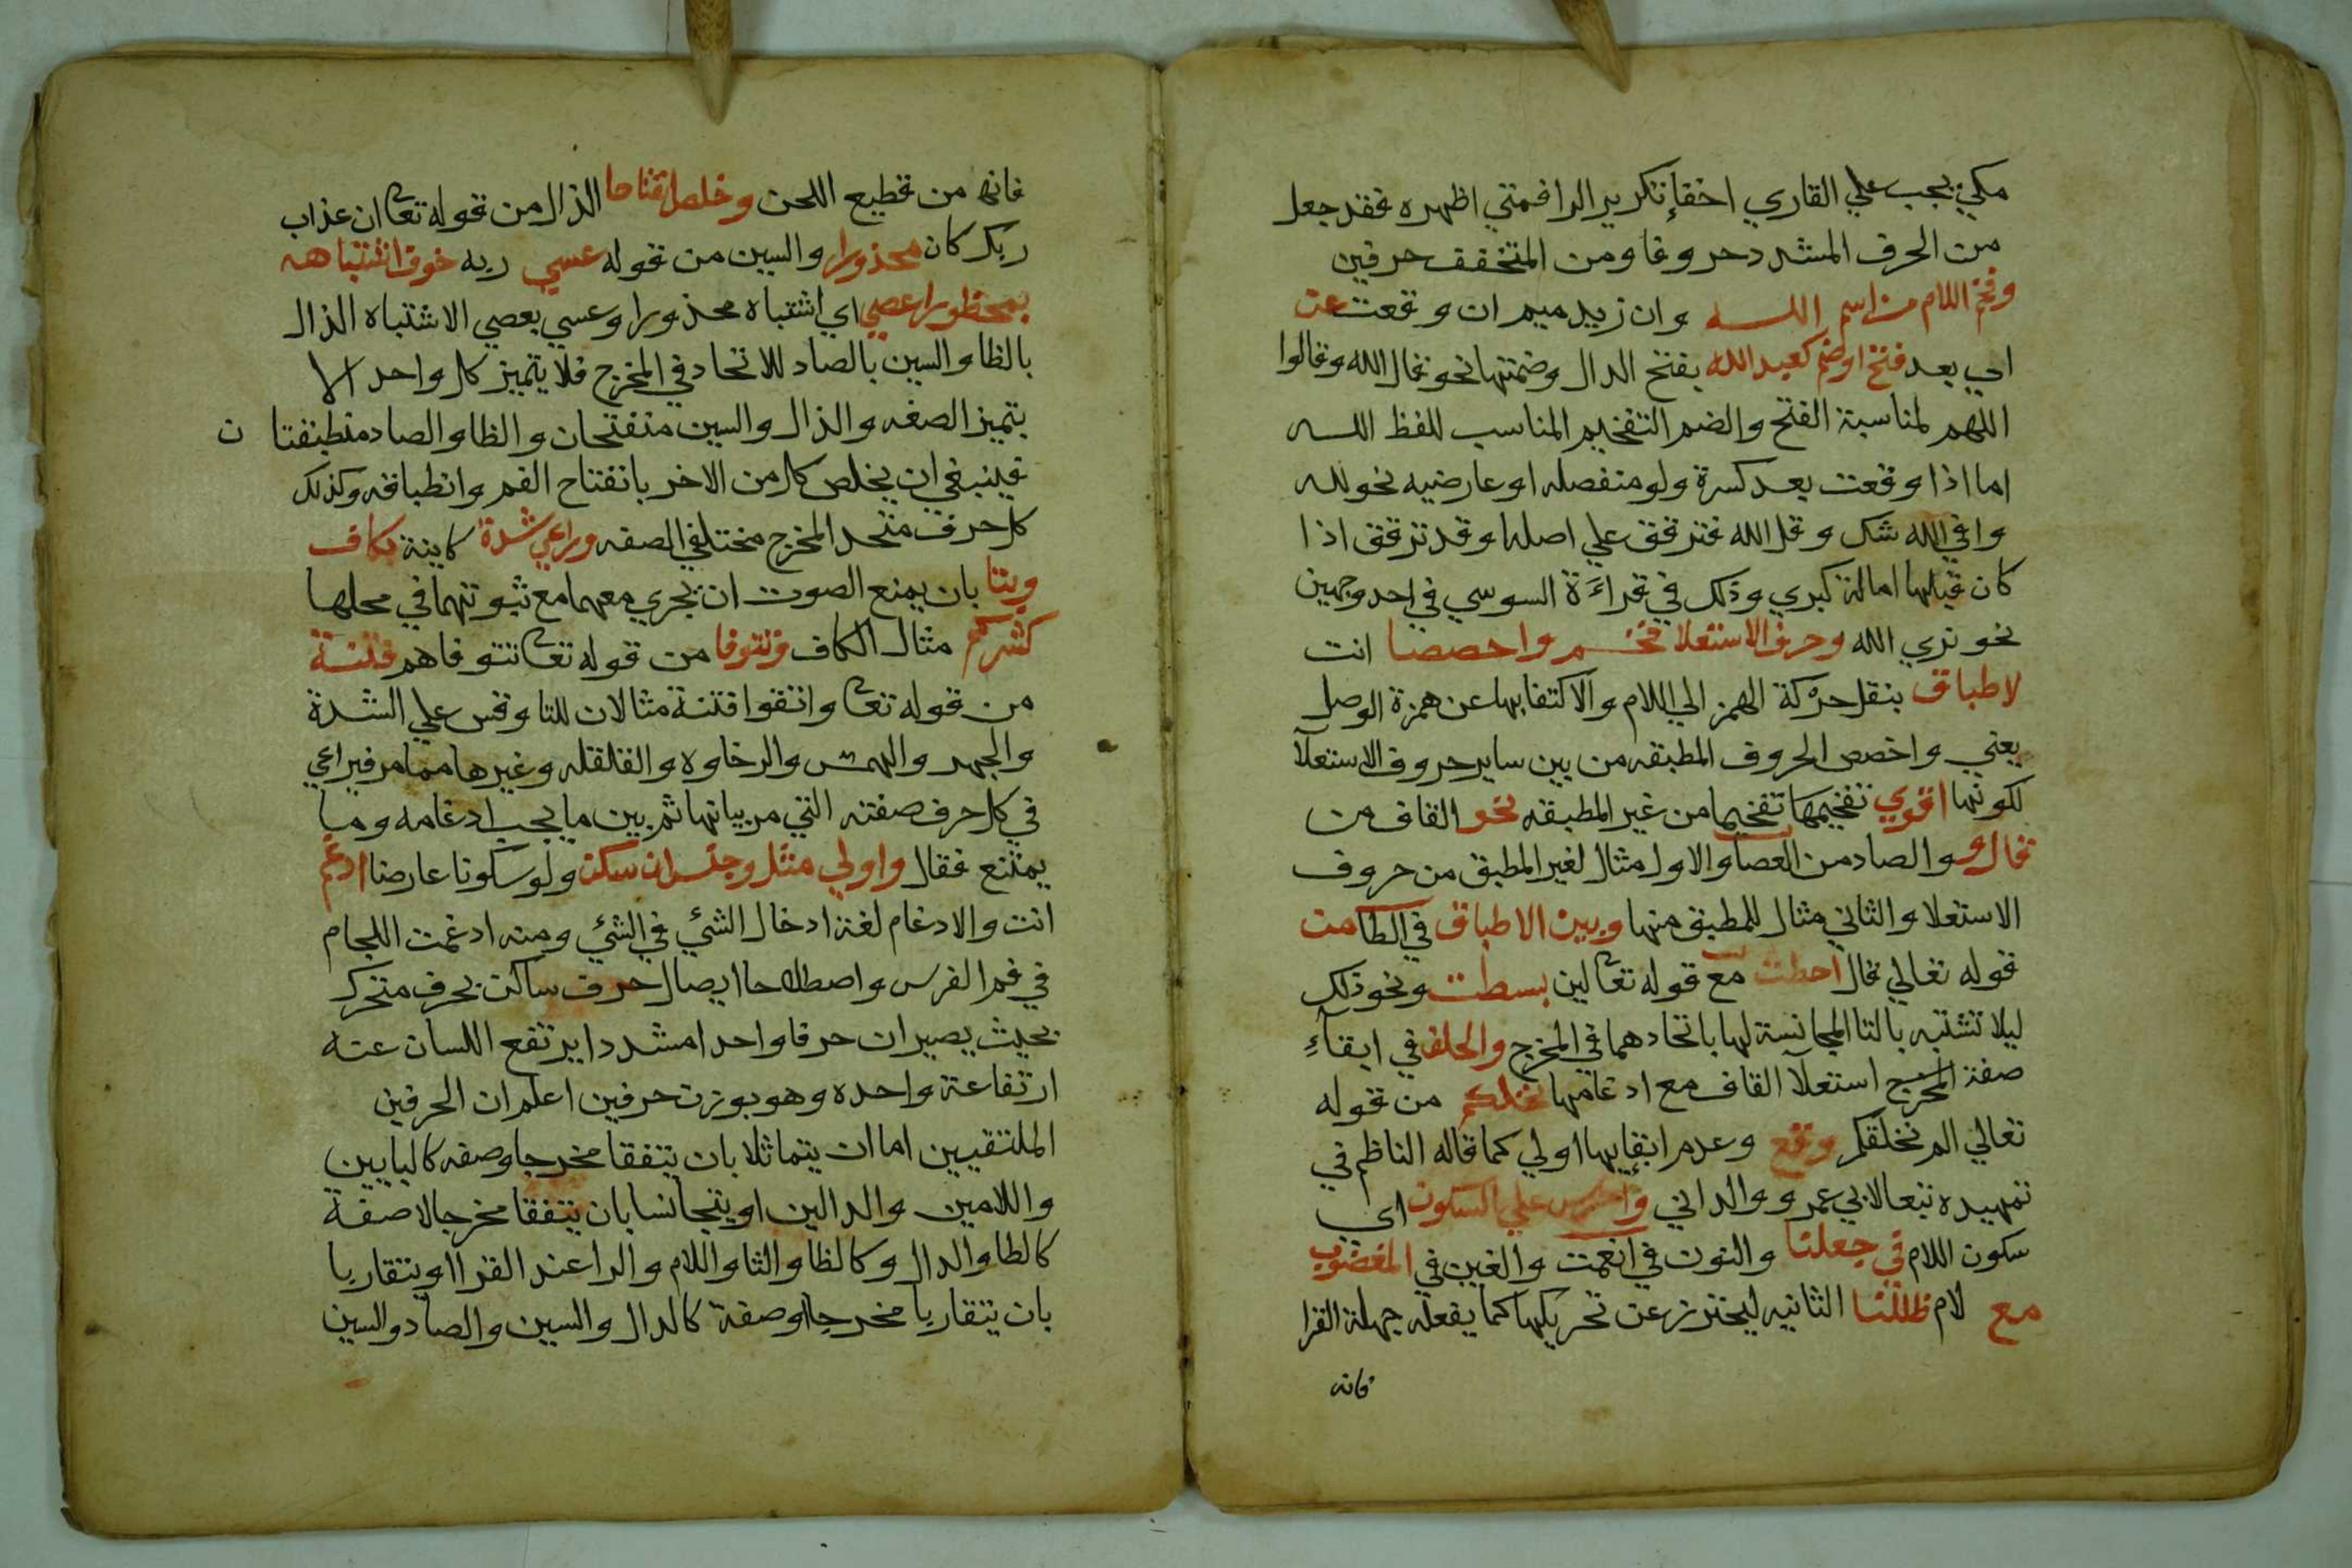 مكي يجب علي القاري اخفا تكرير الرا فمتي اظهره فقد جعل
من الحرف المشدد حروفا ومن المخفف حرفين
وفخم اللام من اسم الله وان زيد ميم ان وقعت عن
اي بعد فتح او ضم كعبد الله بفتح الدال وضمتها نحو قال الله وقالوا
اللهم لمناسبة الفتح والضم التفخيم المناسب للفظ الله
اما اذا وقعت بعد كسرة ولو منفصله او عارضيه نحو لله
وافي الله شك وقل الله فترقق علي اصلها وقد ترقق اذا
كان قبلها امالة كبري وذلك في قراءة السوسي في احد وجهين
نحو نري الله وحرف الاستعلا فخم واخصصا انت
لاطباق بنقل حركة الهمز الي اللام والاكتفا بها عن همزة الوصل
يعني واخصص الحروف المطبقه من بين ساير حروف الاستعلا
لكونها اقوي تفخيمها تفخيما من غير المطبقه نحو القاف من
قال و والصاد من العصا والاول مثال لغير المطبق من حروف
الاستعلا والثاني مثال للمطبق منها وبين الاطباق في الطا من
قوله تعالي قال احطت مع قوله تعا لين بسطت ونحو ذلك
ليلا تشتبه بالتا المجانسة لها باتحادهما في المخرج والخلف في ابقاء
صفة المخرج استعلا القاف مع ادغامها نخلكم من قوله
تعالي الم نخلقكم وقع وعدم ابقايها اولي كما قاله الناظم في
تمهيده تبعا لابي عمرو والداني واحرص علي السكون اي
سكون اللام في جعلنا والنون في انعمت والغين في المغضوب
مع لام ظللنا الثانيه ليحترز عن تحريكها كما يفعله جهلة القرا
فانه
فانه من فظيع اللحن وخلص انفتاحا الذال من قوله تعا ان عذاب
ربك كان محذورا والسين من قوله عسي ربه خوف اشتباهه
بمحظورا عصي اي اشتباه محذورا وعسي بعصي الاشتباه الذال
بالظا والسين بالصاد للاتحاد في المخرج فلا يتميز كل واحد الا
بتميز الصفه والذال والسين منفتحان والظا والصاد منطبقتا ن
فينبغي ان يخلص كل من الاخر بانفتاح الفم وانطباقه وكذلك
كل حرف متحد المخرج مختلفي الصفه وراعي شدة كاينة بكاف
وبتا بان يمنع الصوت ان يجري معهما مع ثبوتهما في محلها
كشرككم مثال الكاف وتتوفا من قوله تعا تتوفاهم فتنة
من قوله تعا واتقوا فتنة مثالان للتا وقس علي الشدة
والجهر والهمس والرخاوه والقلقله وغيرها مما مر فيراعي
في كل حرف صفته التي مر بيانها ثم بين ما يجب ادغامه وما
يمتنع فقال واولي مثل وجنس ان سكن ولو سكونا عارضا ادغم
انت والادغام لغة ادخال الشئ في الشئ ومنه ادغمت اللجام
في فم الفرس واصطلاحا ايصال حرف ساكن بحرف متحرك
بحيث يصيران حرفا واحدا مشددا يرتفع اللسان عنه
ارتفاعة واحده وهو بوزن حرفين اعلم ان الحرفين
الملتقيين اما ان يتماثلا بان يتفقا مخرجا وصفه كالبايين
واللامين والدالين او يتجانسا بان يتفقا مخرجا لا صفة
كالطا والدال وكالظا والثا واللام والرا عند الفرا او يتقاربا
بان يتقاربا مخرجا وصفة كالدال والسين والصاد والسين